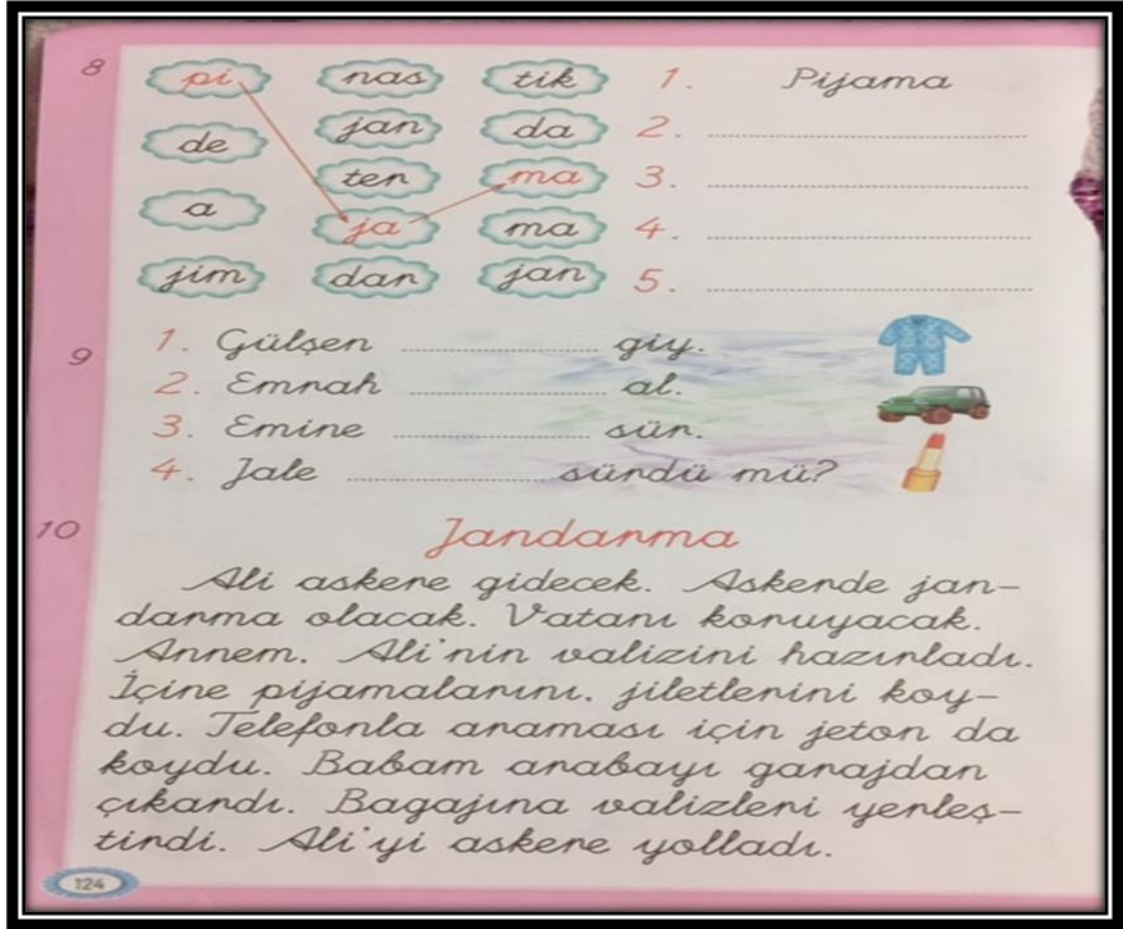 8
pi nas tik 1. Pijama
de jan da 2.
ter ma 3.
a ja ma 4.
jim dar jan 5.
9
1. Gülşen giy.
2. Emrah al.
3. Emine sür.
4. Jale sürdü mü?
10
Jandarma
Ali askere gidecek. Askerde jan-
darma olacak. Vatanı koruyacak.
Annem. Ali'nin valizini hazırladı.
İçine pijamalarını. jiletlerini koy-
du. Telefonla araması için jeton da
koydu. Babam arabayı garajdan
çıkardı. Bagajına valizleri yerleş-
tirdi. Ali'yi askere yolladı.
124